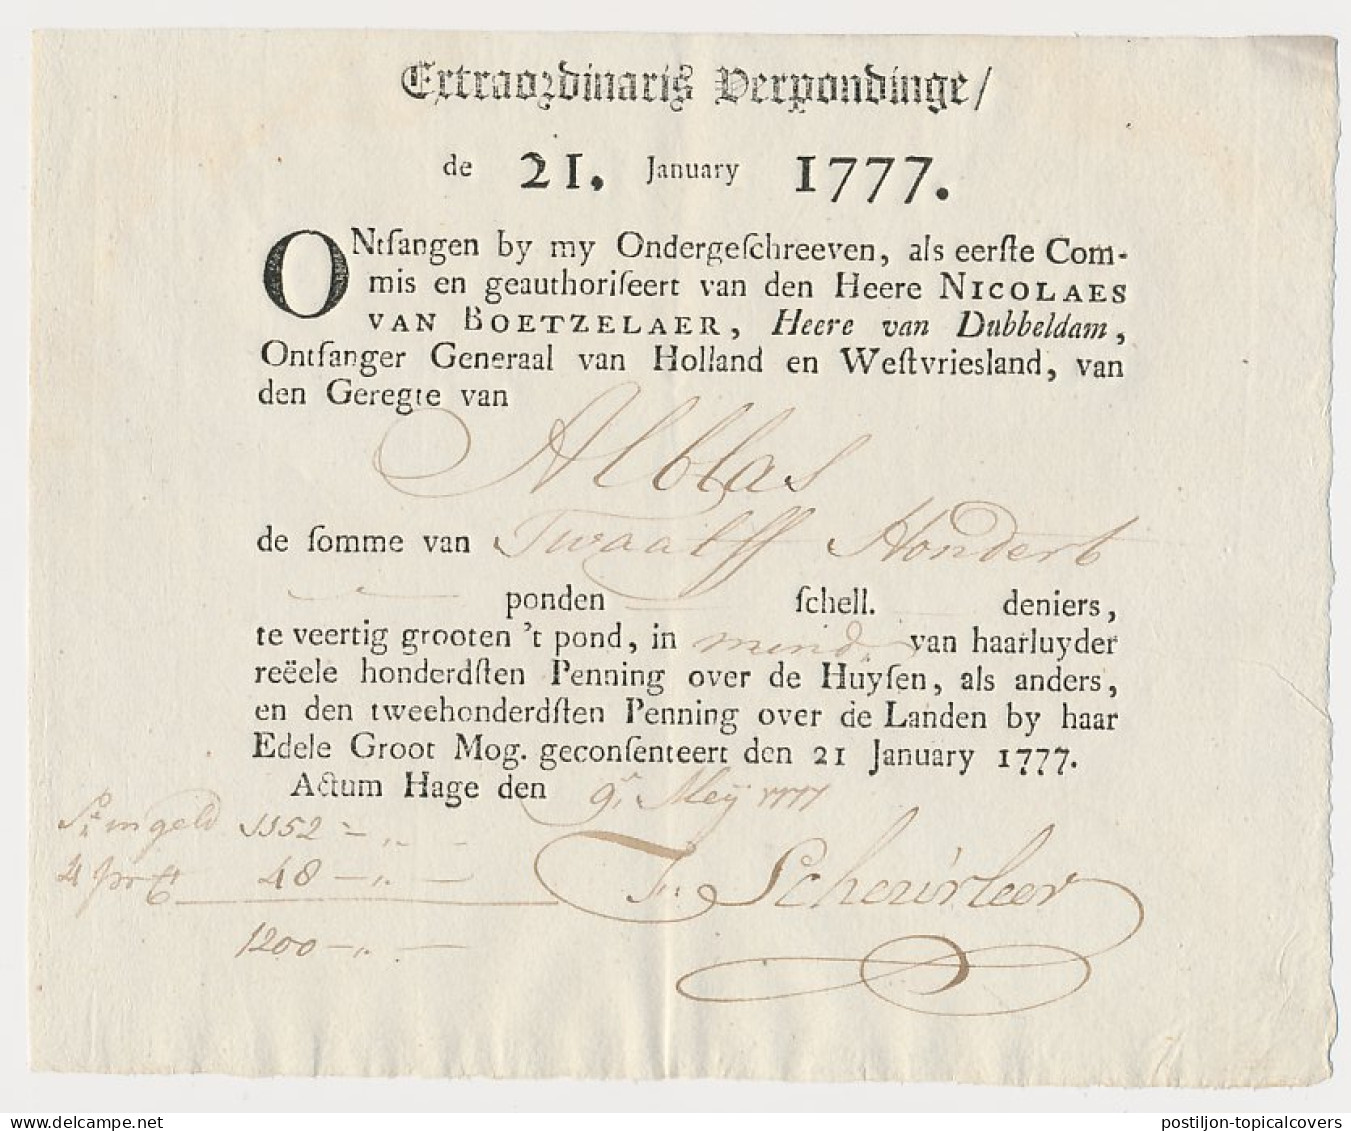 Extraordinaris Verpondinge/
de 21. January 1777.
ONtfangen by my Ondergeſchreeven, als eerſte Com-
mis en geauthoriſeert van den Heere NICOLAES
VAN BOETZELAER, Heere van Dubbeldam,
Ontfanger Generaal van Holland en Weſtvriesland, van
den Geregte van
Alblas
de ſomme van Twaalff Hondert
ponden ſchell. deniers,
te veertig grooten 't pond, in mind. van haarluyder
reëele honderdſten Penning over de Huyſen, als anders,
en den tweehonderdſten Penning over de Landen by haar
Edele Groot Mog. geconſenteert den 21 January 1777.
Actum Hage den 9 Meÿ 1777
in geld 1152
4 pr Ct 48
Scheurleer
1200
delcampe.net
postiljon-topicalcovers